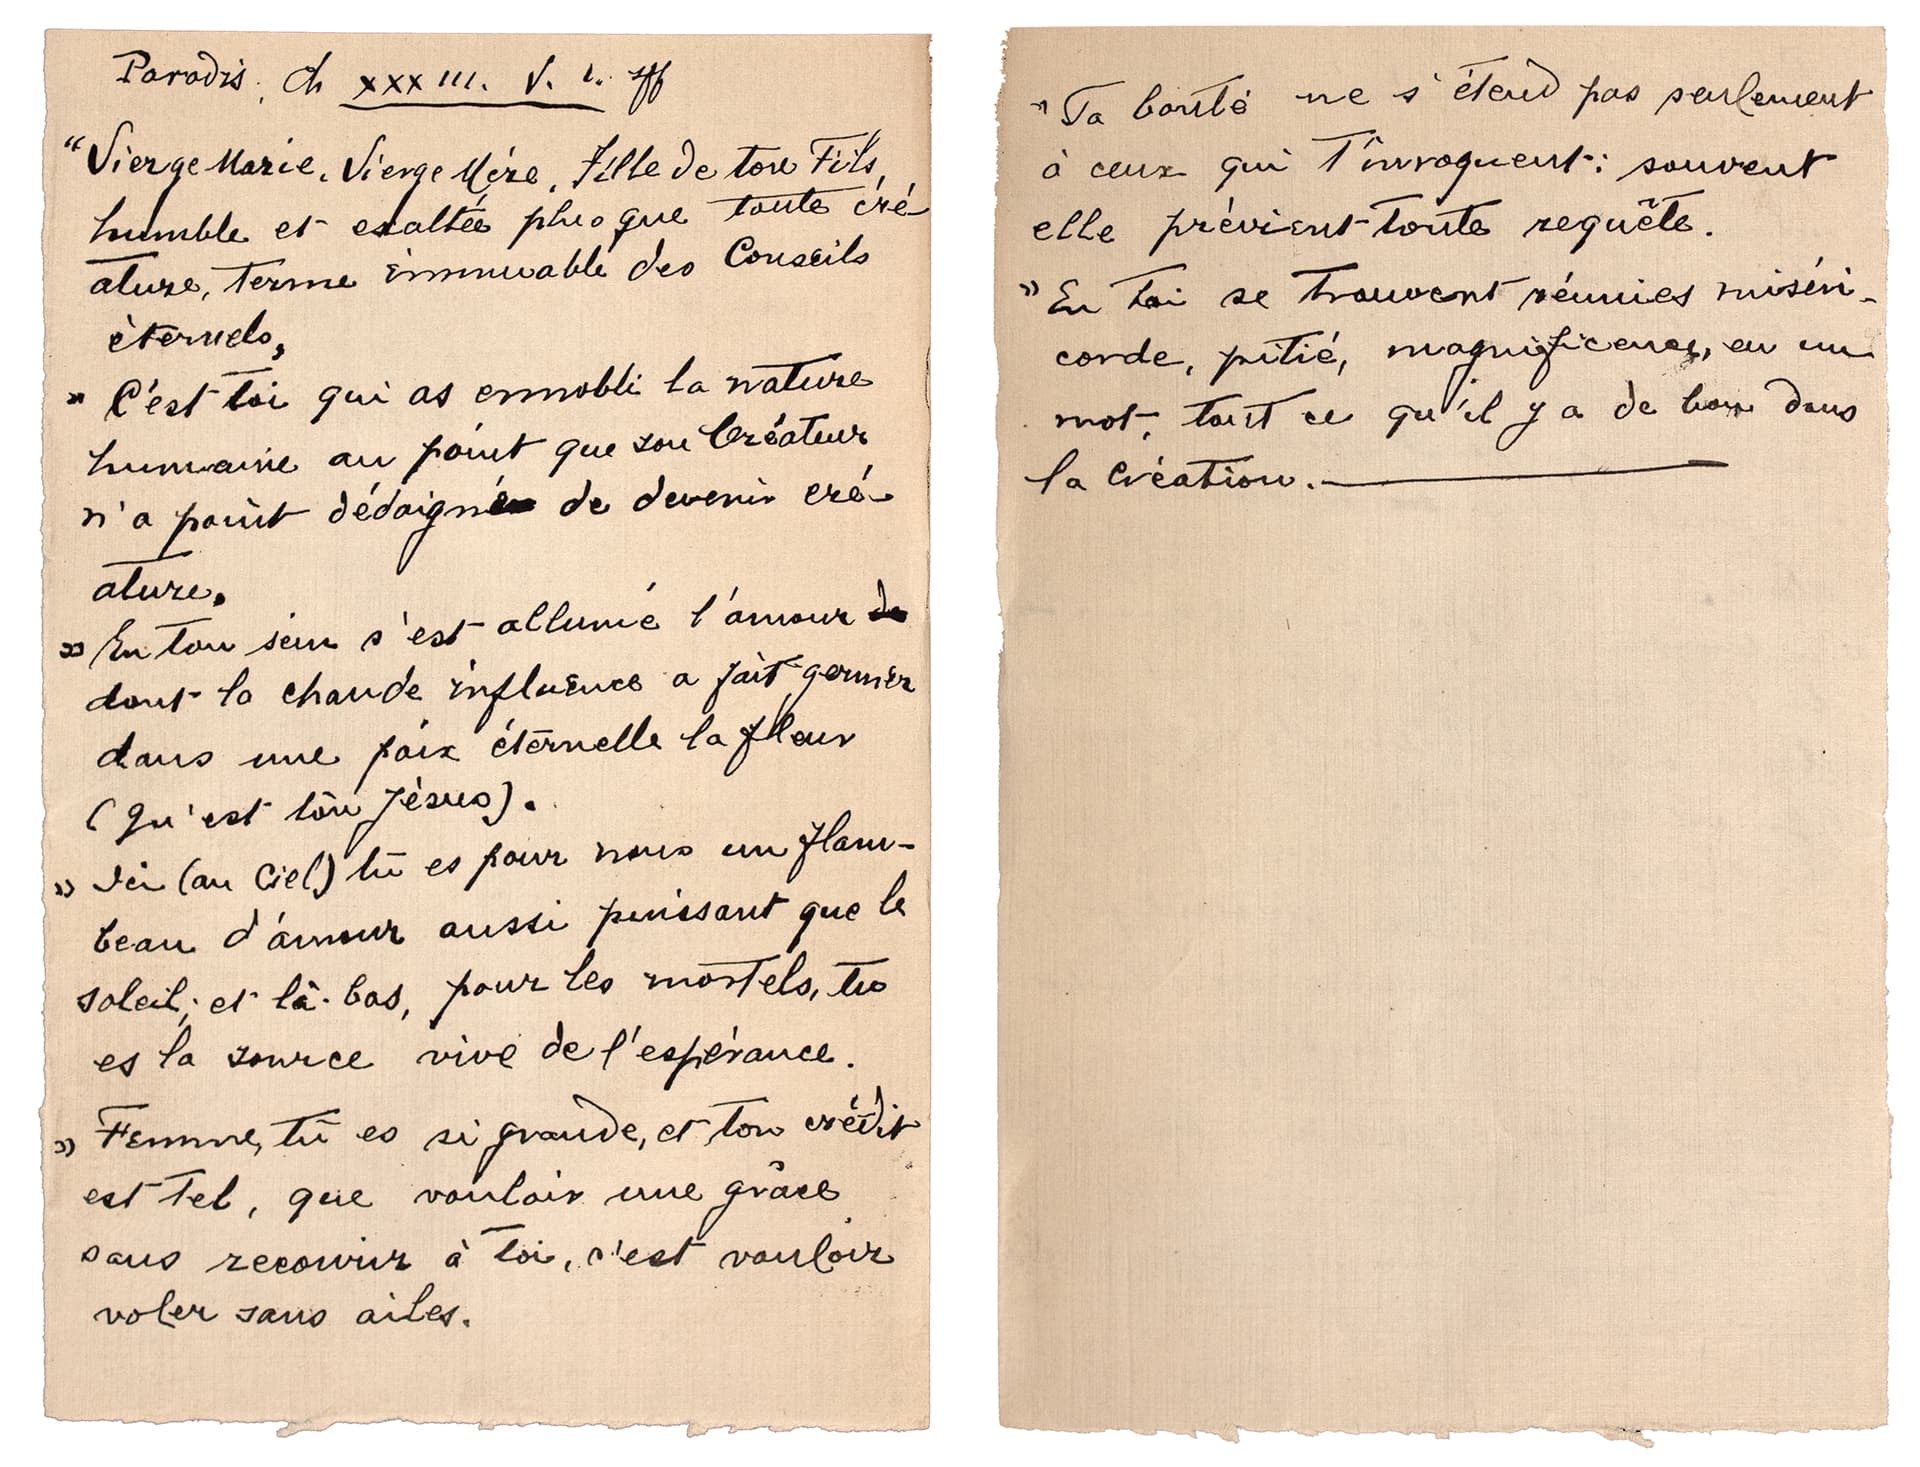 Paradis, ch XXXIII. V. 1. sff
“Vierge Marie, Vierge Mère, Fille de ton Fils,
humble et exaltée plus que toute cré-
ature, terme immuable des Conseils
éternels,
» C'est toi qui as ennobli la nature
humaine au point que son Créateur
n'a point dédaigné de devenir cré-
ature.
» En ton sein s'est allumé l'amour de
dont la chaude influence a fait germer
dans une paix éternelle la fleur
(qu'est ton Jésus).
» Ici (au Ciel) tu es pour nous un flam-
beau d'amour aussi puissant que le
soleil; et là-bas, pour les mortels, tu
es la source vive de l'espérance.
» Femme, tu es si grande, et ton crédit
est tel, que vouloir une grâce
sans recourir à toi, c'est vouloir
voler sans ailes.
» Ta bonté ne s'étend pas seulement
à ceux qui t'invoquent: souvent
elle prévient toute requête.
» En toi se trouvent réunies miséri-
corde, pitié, magnificence, en un
mot, tout ce qu'il y a de bon dans
la Création.